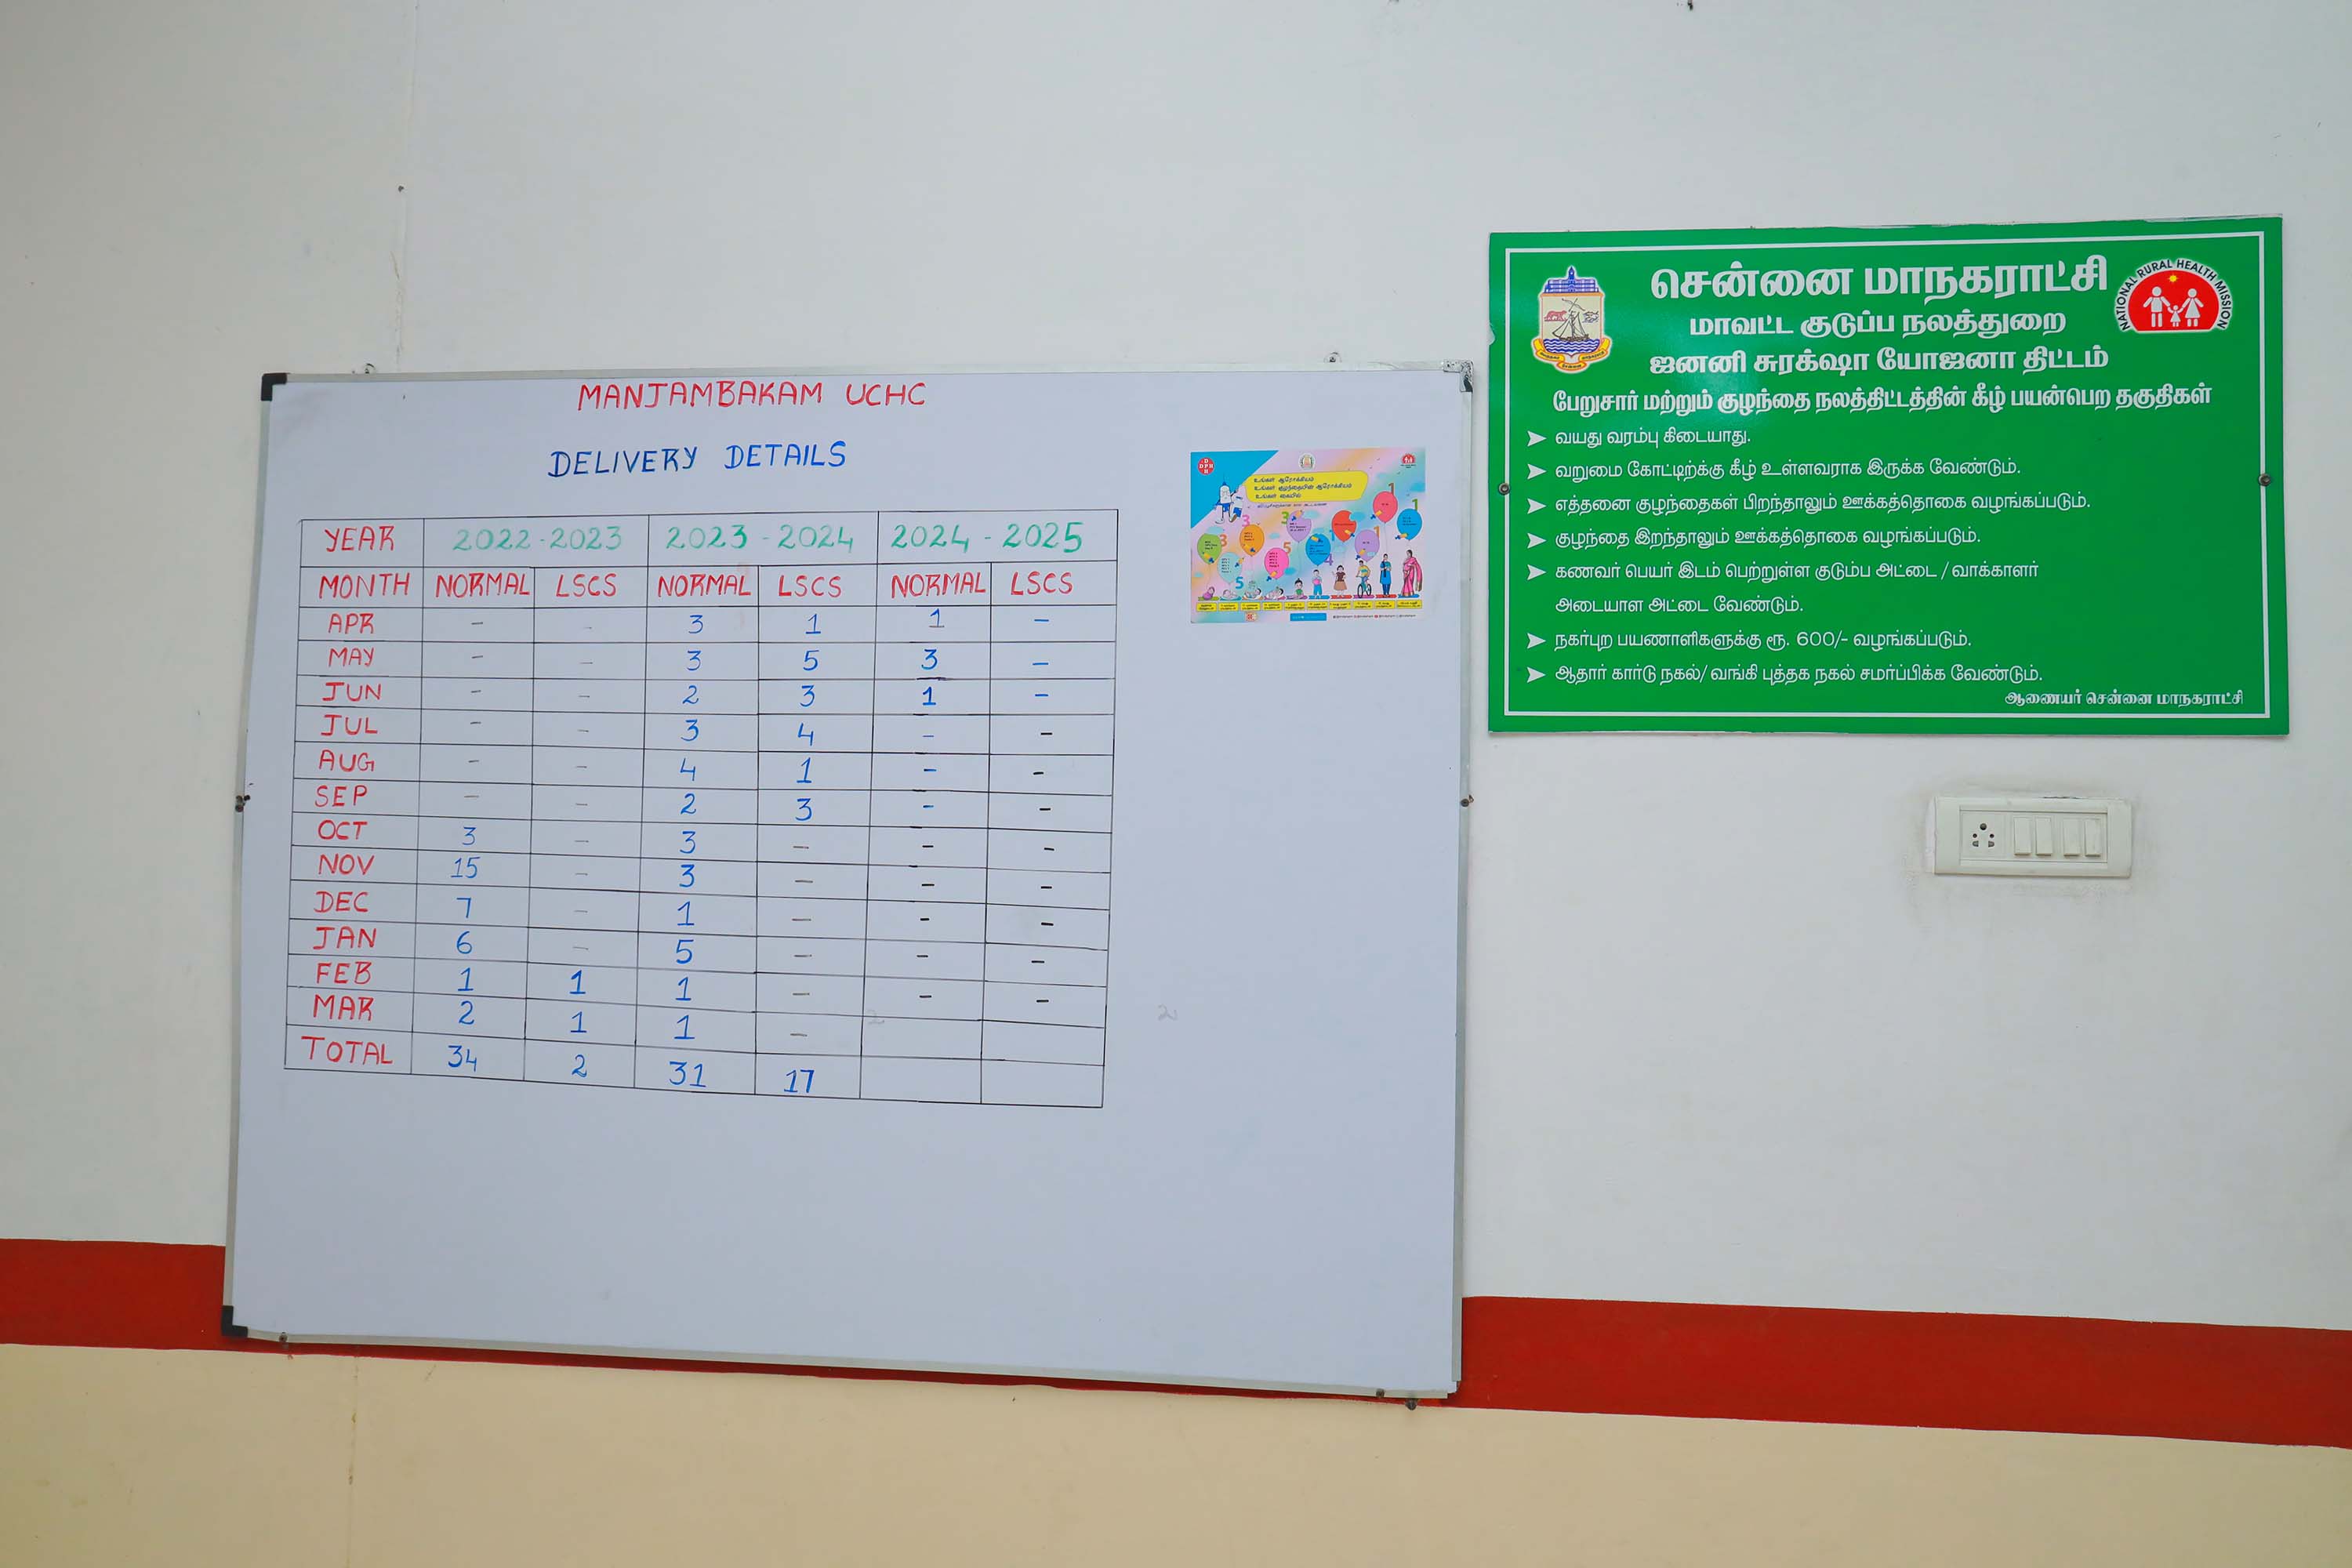 MANJAMBAKAM UCHC
DELIVERY DETAILS
YEAR 2022-2023 2023-2024 2024-2025
MONTH NORMAL LSCS NORMAL LSCS NORMAL LSCS
APR - - 3 1 1 -
MAY - - 3 5 3 -
JUN - - 2 3 1 -
JUL - - 3 4 - -
AUG - - 4 1 - -
SEP - - 2 3 - -
OCT 3 - 3 - - -
NOV 15 - 3 - - -
DEC 7 - 1 - - -
JAN 6 - 5 - - -
FEB 1 1 1 - - -
MAR 2 1 1 -
TOTAL 34 2 31 17
உங்கள் ஆரோக்கியம்
உங்கள் குழந்தையின் ஆரோக்கியம்
உங்கள் கையில்
சென்னை மாநகராட்சி
NATIONAL RURAL HEALTH MISSION
மாவட்ட குடுப்ப நலத்துறை
ஜனனி சுரக்ஷா யோஜனா திட்டம்
பேறுசார் மற்றும் குழந்தை நலத்திட்டத்தின் கீழ் பயன்பெற தகுதிகள்
வயது வரம்பு கிடையாது.
வறுமை கோட்டிற்க்கு கீழ் உள்ளவராக இருக்க வேண்டும்.
எத்தனை குழந்தைகள் பிறந்தாலும் ஊக்கத்தொகை வழங்கப்படும்.
குழந்தை இறந்தாலும் ஊக்கத்தொகை வழங்கப்படும்.
கணவர் பெயர் இடம் பெற்றுள்ள குடும்ப அட்டை / வாக்காளர்
அடையாள அட்டை வேண்டும்.
நகர்புற பயணாளிகளுக்கு ரூ. 600/- வழங்கப்படும்.
ஆதார் கார்டு நகல்/ வங்கி புத்தக நகல் சமர்ப்பிக்க வேண்டும்.
ஆணையர் சென்னை மாநகராட்சி